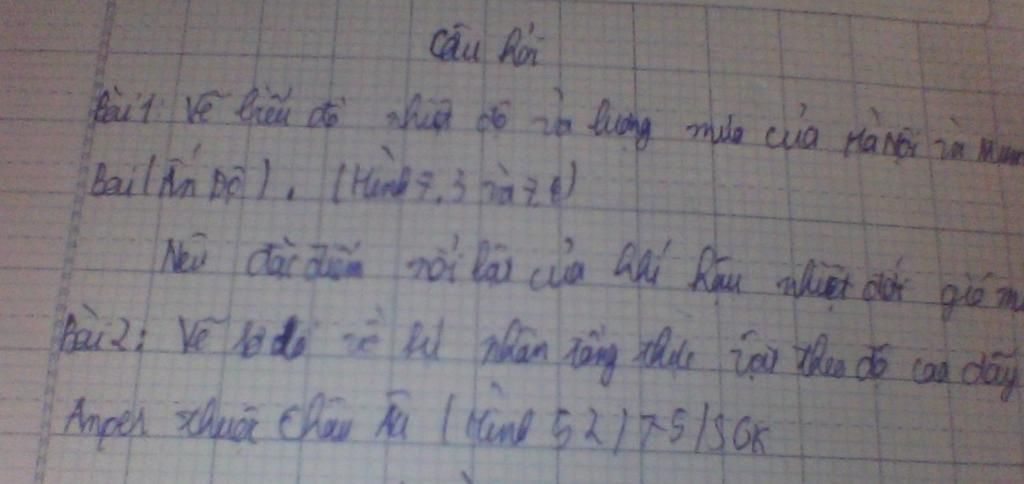 Câu hỏi
Bài 1: Vẽ biểu đồ nhiệt độ và lượng mưa của Hà Nội và Mum
Bai (Ấn Độ). (Hình 7.3 và 7.4)
Nêu đặc điểm nổi bật của khí hậu nhiệt đới gió m
Bài 2: Vẽ sơ đồ về sự phân tầng thực vật theo độ cao dãy
Anpơ thuộc Châu Âu (Hình 52) 75/SGK